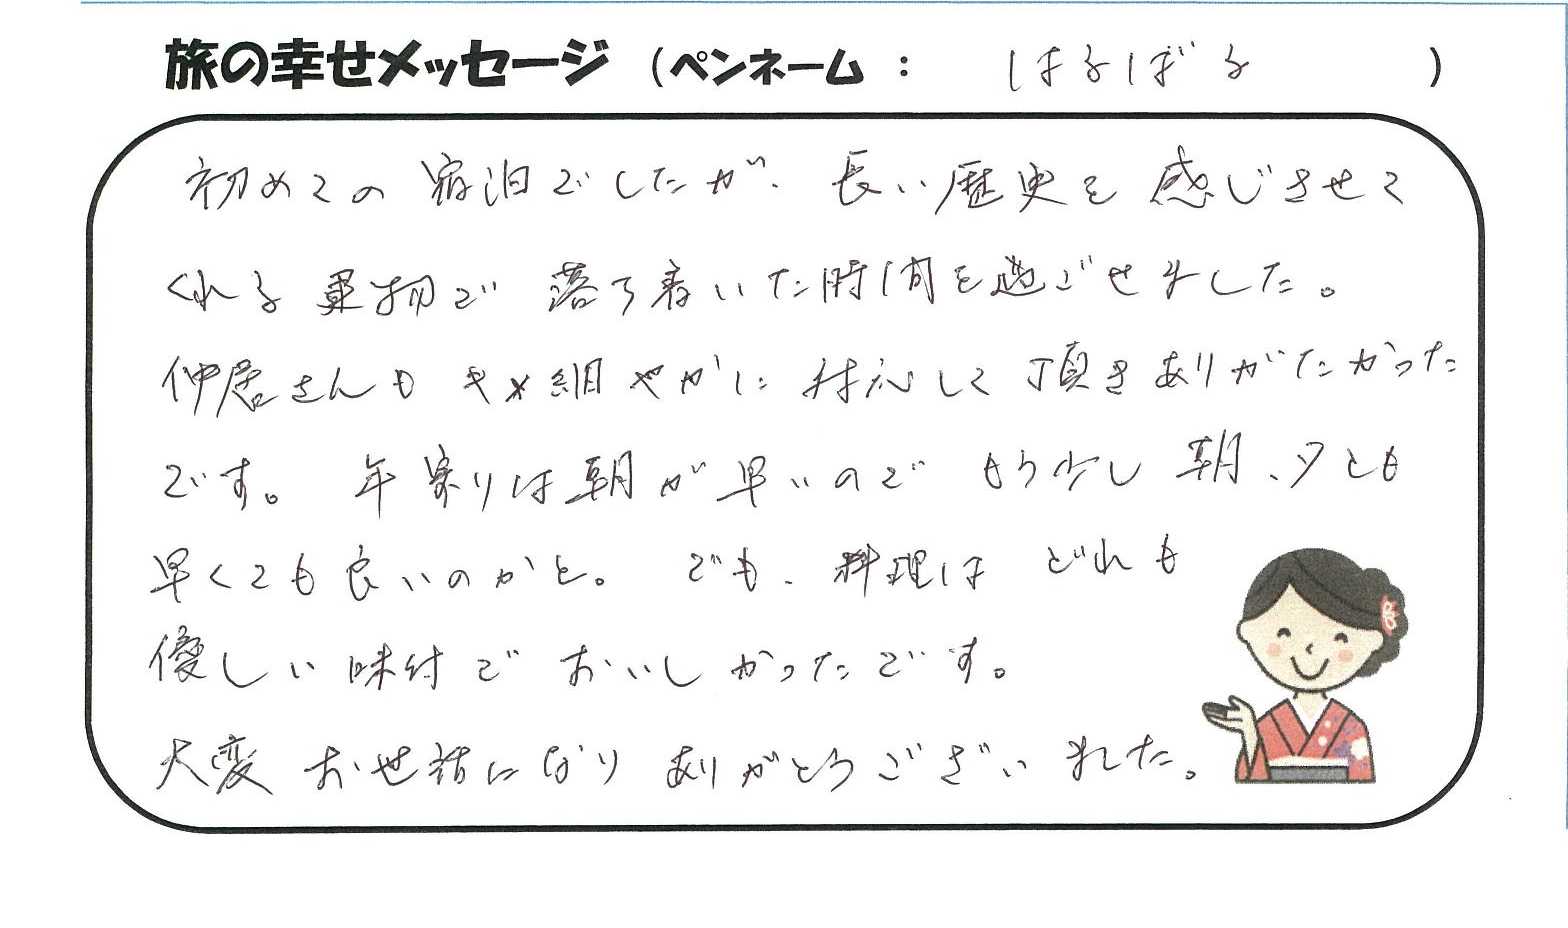 旅の幸せメッセージ (ペンネーム : はるばる )
初めての宿泊でしたが、長い歴史を感じさせて
くれる建物で落ち着いた時間を過ごせました。
仲居さんもキメ細やかに対応して頂きありがたかった
です。年寄りは朝が早いのでもう少し朝、夕とも
早くても良いのかと。でも、料理はどれも
優しい味付でおいしかったです。
大変お世話になりありがとうございました。